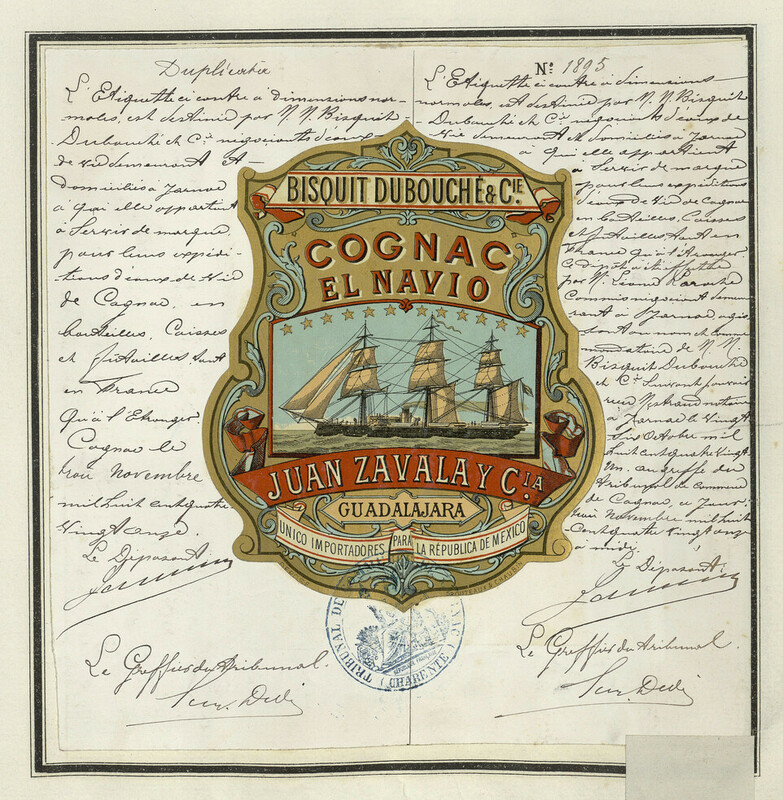 Duplicata
L'Etiquette ci contre à dimensions nor-
males, est destinée par M. M. Bisquit
Dubouché et Cie négociants d'eaux
de vie demeurant et
domiciliés à Jarnac
à qui elle appartient
à servir de marque
pour leurs expédi-
tions d'eaux de vie
de Cognac, en
bouteilles, Caisses
et futailles, tant
en France
qu'à l'Etranger.
Cognac le
trois Novembre
mil huit cent quatre
vingt onze.
Le Déposant
Le Greffier du Tribunal.
No. 1895
L'Etiquette ci contre à dimensions
normales, est destinée par M. M. Bisquit
Dubouché et Cie négociants d'eaux de
vie demeurant et domiciliés à Jarnac
à qui elle appartient
à servir de marque
pour leurs expéditions
d'eaux de vie de Cognac
en bouteilles, Caisses
et futailles tant en
France qu'à l'Etranger.
Ce dépôt a été effectué
par M. Léon
Commis négociant demeu-
rant à Jarnac agis-
sant au nom et comme
mandataire de M. M.
Bisquit Dubouché
et Cie suivant pouvoir
reçu notaire
Jarnac le vingt
six Octobre mil
huit cent quatre vingt
onze au greffe du
Tribunal de Commerce
de Cognac, ce jour
trois Novembre mil huit
cent quatre vingt onze
à midi.
Le Déposant
Le Greffier du Tribunal.
BISQUIT DUBOUCHÉ & CIE.
COGNAC
EL NAVIO
JUAN ZAVALA Y CIA.
GUADALAJARA
UNICO IMPORTADORES PARA LA RÉPUBLICA DE MÉXICO
TRIBUNAL DE
(CHARENTE)